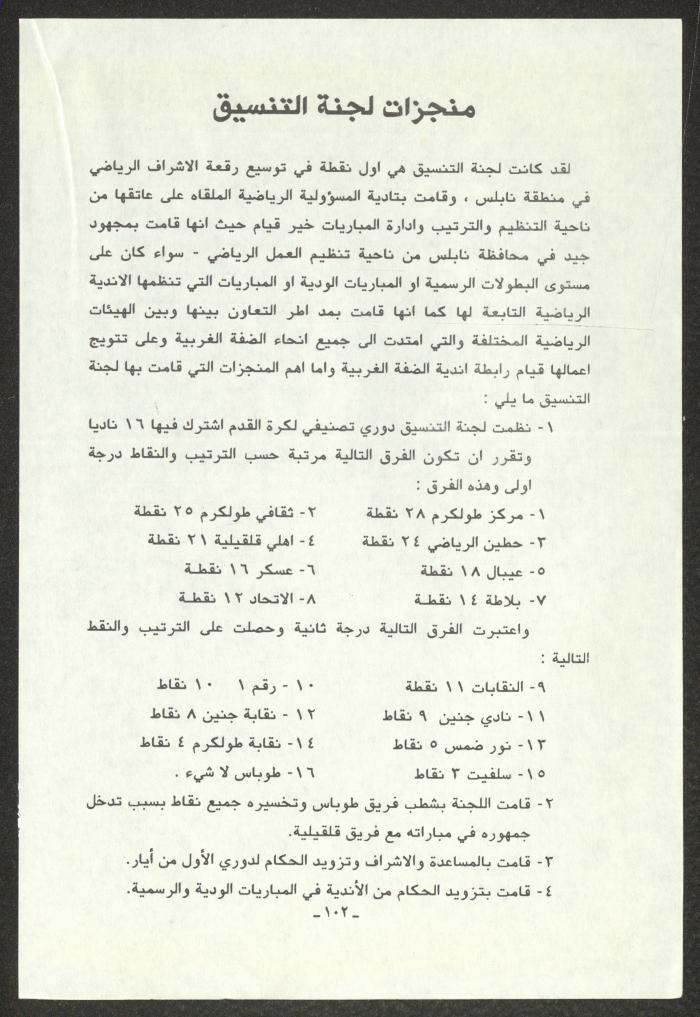 منجزات لجنة التنسيق
لقد كانت لجنة التنسيق هي اول نقطة في توسيع رقعة الاشراف الرياضي
في منطقة نابلس ، وقامت بتادية المسؤولية الرياضية الملقاه على عاتقها من
ناحية التنظيم والترتيب وادارة المباريات خير قيام حيث انها قامت بمجهود
جيد في محافظة نابلس من ناحية تنظيم العمل الرياضي - سواء كان على
مستوى البطولات الرسمية او المباريات الودية او المباريات التي تنظمها الاندية
الرياضية التابعة لها كما انها قامت بمد اطر التعاون بينها وبين الهيئات
الرياضية المختلفة والتي امتدت الى جميع انحاء الضفة الغربية وعلى تتويج
اعمالها قيام رابطة اندية الضفة الغربية واما اهم المنجزات التي قامت بها لجنة
التنسيق ما يلي :
١- نظمت لجنة التنسيق دوري تصنيفي لكرة القدم اشترك فيها ١٦ ناديا
وتقرر ان تكون الفرق التالية مرتبة حسب الترتيب والنقاط درجة
اولى وهذه الفرق :
١- مركز طولكرم ٢٨ نقطة ٢- ثقافي طولكرم ٢٥ نقطة
٣- حطين الرياضي ٢٤ نقطة ٤- اهلي قلقيلية ٢١ نقطة
٥- عيبال ١٨ نقطة ٦- عسكر ١٦ نقطـة
٧- بلاطة ١٤ نقطـة ٨- الاتحاد ١٢ نقطـة
واعتبرت الفرق التالية درجة ثانية وحصلت على الترتيب والنقط
التالية :
٩- النقابات ١١ نقطة ١٠ - رقم ١ ١٠ نقاط
١١- نادي جنين ٩ نقاط ١٢ - نقابة جنين ٨ نقاط
١٣- نور ضمس ٥ نقاط ١٤- نقابة طولكرم ٤ نقاط
١٥- سلفيت ٣ نقاط ١٦- طوباس لا شيء .
٢- قامت اللجنة بشطب فريق طوباس وتخسيره جميع نقاط بسبب تدخل
جمهوره في مباراته مع فريق قلقيلية.
٣- قامت بالمساعدة والاشراف وتزويد الحكام لدوري الأول من أيار.
٤- قامت بتزويد الحكام من الأندية في المباريات الودية والرسمية.
ـ ١٠٢ ـ